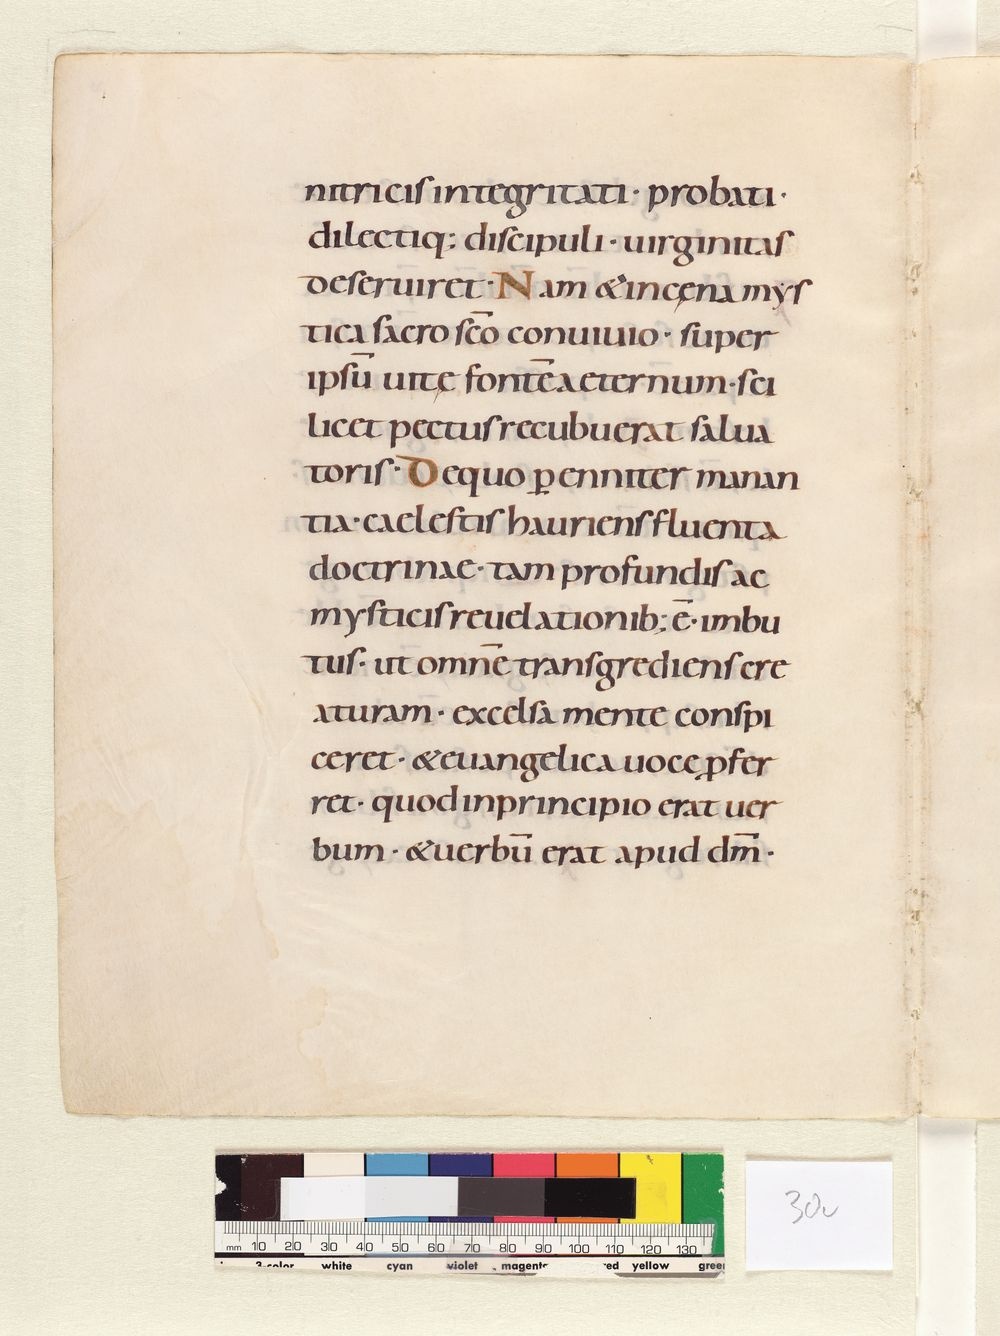 nitricis integritati · probati ·
dilectiq; discipuli · uirginitas
deseruiret · Nam & in cęna mys
tica sacro sc̄o conuiuio · super
ipsū uitę fontē aeternum · sci
licet pectus recubuerat salua
toris · De quo ꝑenniter manan
tia · caelestis hauriens fluenta
doctrinae · tam profundis ac
mysticis reuelationib; ē · imbu
tus · ut omnē transgrediens cre
aturam · excelsa mente conspi
ceret · & euangelica uocę ꝓfer
ret · quod in principio erat uer
bum · & uerbū erat apud dm̄ ·
mm 10 20 30 40 50 60 70 80 90 100 110 120 130
3-color white cyan violet magenta red yellow green
30v